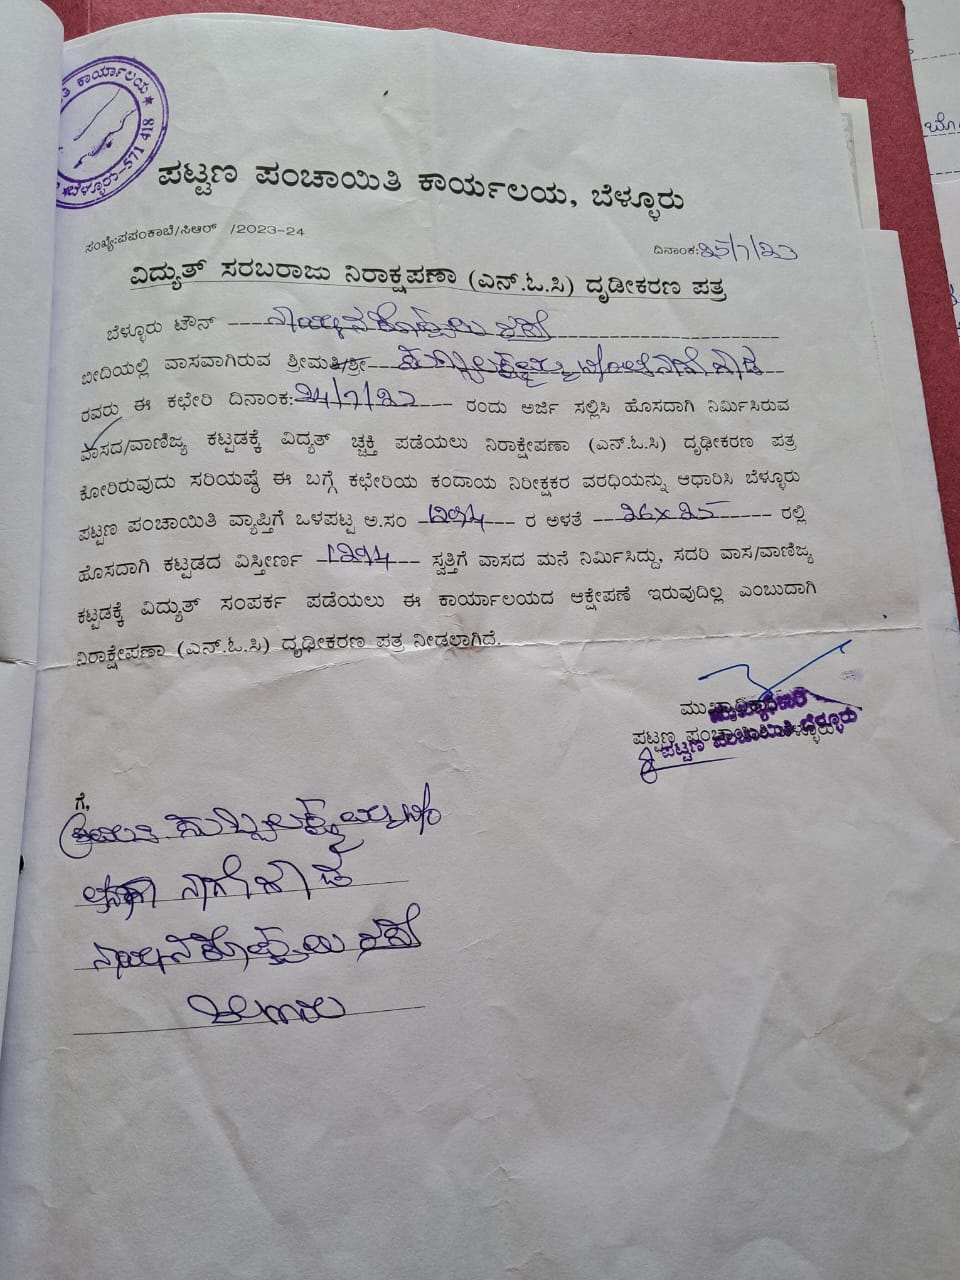 ಕಾರ್ಯಾಲಯ ★
★ ಬೆಳ್ಳೂರು-571 418
ಪಟ್ಟಣ ಪಂಚಾಯಿತಿ ಕಾರ್ಯಲಯ, ಬೆಳ್ಳೂರು
ಸಂಖ್ಯೆ:ಪಪಂಕಾಬೆ/ಸಿಆರ್ /2023-24
ದಿನಾಂಕ:25/7/23
ವಿದ್ಯುತ್ ಸರಬರಾಜು ನಿರಾಕ್ಷಪಣಾ (ಎನ್.ಓ.ಸಿ) ದೃಡೀಕರಣ ಪತ್ರ
ಬೆಳ್ಳೂರು ಟೌನ್
ಬೀದಿಯಲ್ಲಿ ವಾಸವಾಗಿರುವ ಶ್ರೀಮತಿ/ಶ್ರೀ
ರವರು ಈ ಕಛೇರಿ ದಿನಾಂಕ:24/7/23 ರಂದು ಅರ್ಜಿ ಸಲ್ಲಿಸಿ ಹೊಸದಾಗಿ ನಿರ್ಮಿಸಿರುವ
ವಾಸದ/ವಾಣಿಜ್ಯ ಕಟ್ಟಡಕ್ಕೆ ವಿದ್ಯತ್ ಚ್ಚಕ್ತಿ ಪಡೆಯಲು ನಿರಾಕ್ಷೇಪಣಾ (ಎನ್.ಓ.ಸಿ) ದೃಢೀಕರಣ ಪತ್ರ
ಕೋರಿರುವುದು ಸರಿಯಷ್ಠೆ ಈ ಬಗ್ಗೆ ಕಛೇರಿಯ ಕಂದಾಯ ನಿರೀಕ್ಷಕರ ವರಧಿಯನ್ನು ಆಧಾರಿಸಿ ಬೆಳ್ಳೂರು
ಪಟ್ಟಣ ಪಂಚಾಯಿತಿ ವ್ಯಾಪ್ತಿಗೆ ಒಳಪಟ್ಟ ಅ.ಸಂ 1294 ರ ಅಳತೆ 26×25 ರಲ್ಲಿ
ಹೊಸದಾಗಿ ಕಟ್ಟಡದ ವಿಸ್ತೀರ್ಣ 1294 ಸ್ವತ್ತಿಗೆ ವಾಸದ ಮನೆ ನಿರ್ಮಿಸಿದ್ದು, ಸದರಿ ವಾಸ/ವಾಣಿಜ್ಯ
ಕಟ್ಟಡಕ್ಕೆ ವಿದ್ಯುತ್ ಸಂಪರ್ಕ ಪಡೆಯಲು ಈ ಕಾರ್ಯಾಲಯದ ಆಕ್ಷೇಪಣೆ ಇರುವುದಿಲ್ಲ ಎಂಬುದಾಗಿ
ನಿರಾಕ್ಷೇಪಣಾ (ಎನ್.ಓ.ಸಿ) ದೃಢೀಕರಣ ಪತ್ರ ನೀಡಲಾಗಿದೆ.
ಮುಖ್ಯಾಧಿಕಾರಿ
ಪಟ್ಟಣ ಪಂಚಾಯಿತಿ ಬೆಳ್ಳೂರು
ಗೆ,